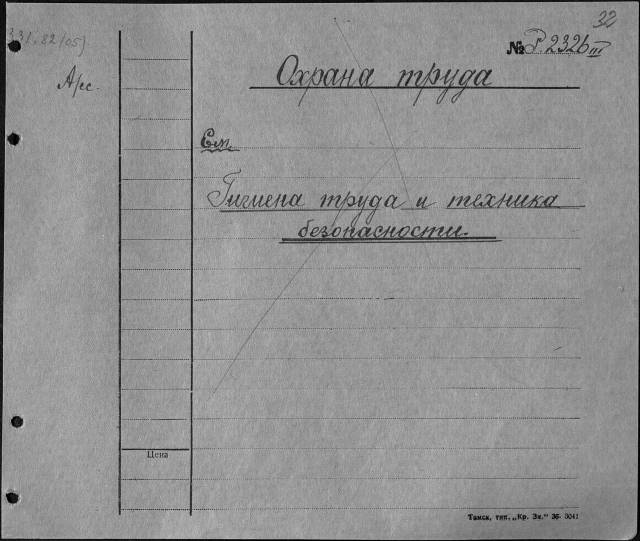 32
331.82(05)
№ Р. 2326 III
Арс.
Охрана труда
См.
Гигиена труда и техника
безопасности.
Цена
Томск, тип. „Кр. Зн.“ 36- 3041